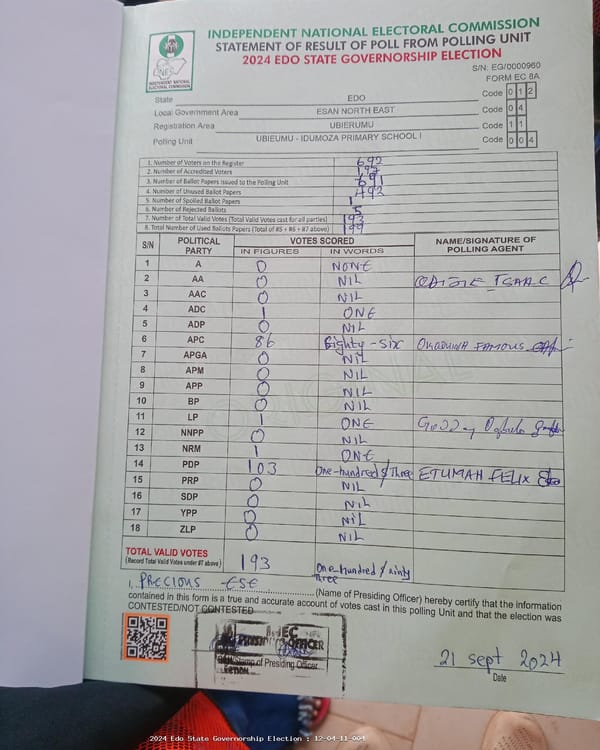 INDEPENDENT NATIONAL ELECTORAL COMMISSION
STATEMENT OF RESULT OF POLL FROM POLLING UNIT
2024 EDO STATE GOVERNORSHIP ELECTION
S/N: EG/0000960
FORM EC 8A
INDEPENDENT NATIONAL ELECTORAL COMMISSION
State EDO Code 0 1 2
Local Government Area ESAN NORTH EAST Code 0 4
Registration Area UBIERUMU Code 1 1
Polling Unit UBIEUMU - IDUMOZA PRIMARY SCHOOL I Code 0 0 4
1. Number of Voters on the Register 692
2. Number of Accredited Voters
3. Number of Ballot Papers issued to the Polling Unit 691
4. Number of Unused Ballot Papers 492
5. Number of Spoiled Ballot Papers 1
6. Number of Rejected Ballots 5
7. Number of Total Valid Votes (Total Valid Votes cast for all parties) 193
8. Total Number of Used Ballots Papers (Total of #5 + #6 + #7 above) 199
S/N POLITICAL PARTY VOTES SCORED NAME/SIGNATURE OF POLLING AGENT
IN FIGURES IN WORDS
1 A 0 NONE
2 AA 0 NIL
3 AAC 0 NIL
4 ADC 1 ONE
5 ADP 0 NIL
6 APC 86 Eighty-six FAMOUS
7 APGA 0 NIL
8 APM 0 NIL
9 APP 0 NIL
10 BP 0 NIL
11 LP 1 ONE
12 NNPP 0 NIL
13 NRM 1 ONE
14 PDP 103 One-hundred & Three ETUMAH FELIX
15 PRP 0 NIL
16 SDP 0 NIL
17 YPP 0 NIL
18 ZLP 0 NIL
TOTAL VALID VOTES
(Record Total Valid Votes under #7 above) 193 One-hundred / ninty three
I, PRECIOUS ESE (Name of Presiding Officer) hereby certify that the information
contained in this form is a true and accurate account of votes cast in this polling Unit and that the election was
CONTESTED/NOT CONTESTED
INEC
PRESIDING OFFICER
Stamp of Presiding Officer
21 sept 2024
Date
2024 Edo State Governorship Election : 12-04-11-004